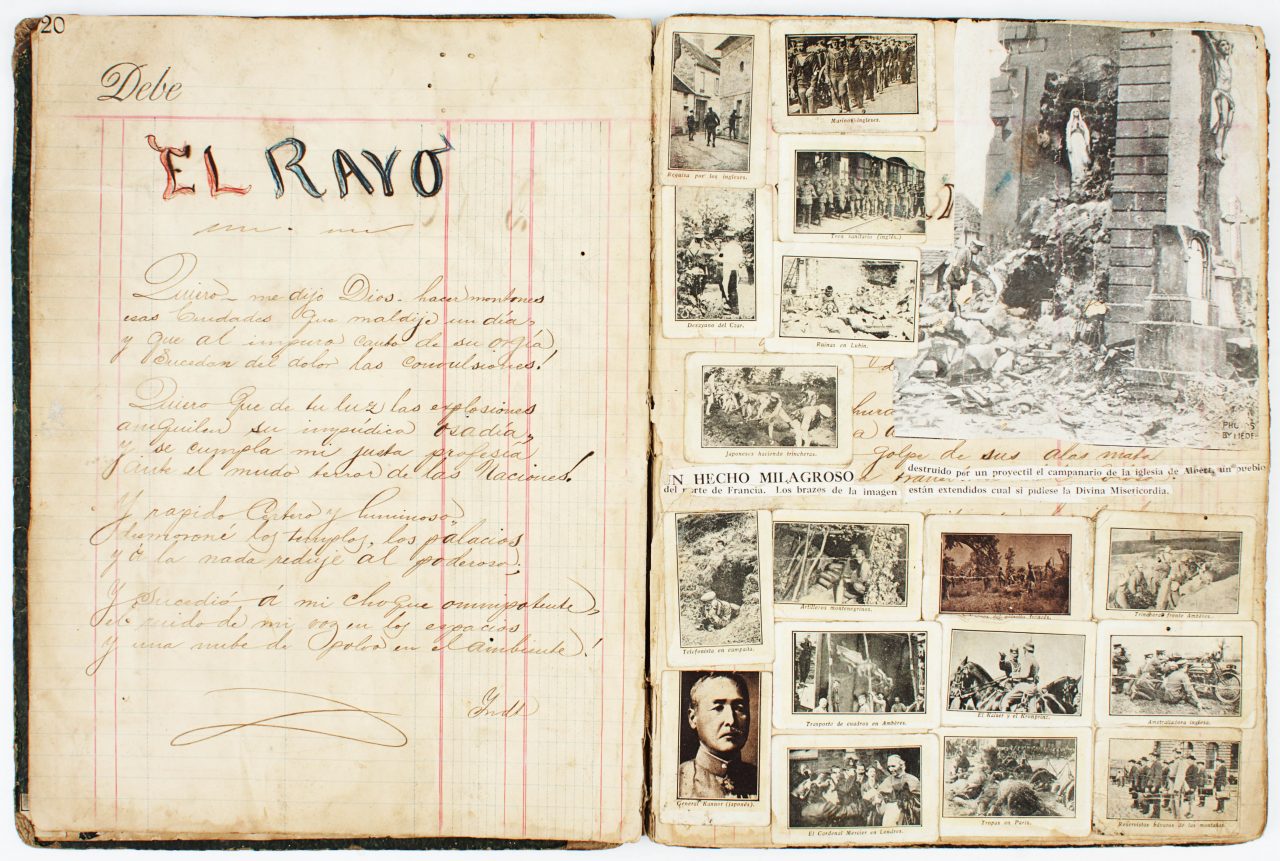 20
Debe
EL RAYO
Quiero - me dijo Dios - hacer montones
esas Ciudades que maldije un día,
y que al impuro canto de su orgía
Sucedan del dolor las convulsiones!
Quiero que de tu luz las explosiones
aniquilen su impúdica osadía,
y se cumpla mi justa profesía
ante el mudo terror de las Naciones!
Y rapido Certero y luminoso
desmoroné los templos, los palacios,
y a la nada reduje al poderoso;
Y Sucedió á mi choque omnipotente,
el ruido de mi voz en los espacios
y una nube de polvo en el ambiente!
Requisa por los ingleses.
Marinos ingleses.
Tren sanitario (inglés.)
Desayuno del Czar.
Ruinas en Lubin.
Japoneses haciendo trincheras.
2
PHOTOS
BY MEDE
golpe de sus alas mata
UN HECHO MILAGROSO
destruido por un proyectil el campanario de la iglesia de Albert, un pueblo
del norte de Francia. Los brazos de la imagen
están extendidos cual si pidiese la Divina Misericordia.
Telefonista en campaña.
Artilleros montenegrinos.
Trincheras frente Ambéres.
Trasporte de cuadros en Ambéres.
El Kaiser y el Kronprinz.
Ametralladora inglesa.
General Kamor (japonés).
El Cardenal Mercier en Londres.
Tropas en París.
Reservistas bávaros de las montañas.